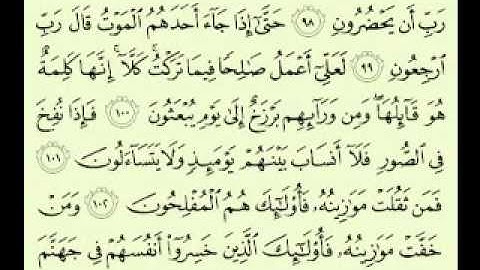 رَبِّ أَن يَحْضُرُونِ ٩٨ حَتَّىٰٓ إِذَا جَآءَ أَحَدَهُمُ ٱلْمَوْتُ قَالَ رَبِّ
ٱرْجِعُونِ ٩٩ لَعَلِّىٓ أَعْمَلُ صَٰلِحًا فِيمَا تَرَكْتُ ۚ كَلَّآ ۚ إِنَّهَا كَلِمَةٌ
هُوَ قَآئِلُهَا ۖ وَمِن وَرَآئِهِم بَرْزَخٌ إِلَىٰ يَوْمِ يُبْعَثُونَ ١٠٠ فَإِذَا نُفِخَ
فِى ٱلصُّورِ فَلَآ أَنسَابَ بَيْنَهُمْ يَوْمَئِذٍ وَلَا يَتَسَآءَلُونَ ١٠١
فَمَن ثَقُلَتْ مَوَٰزِينُهُۥ فَأُو۟لَٰٓئِكَ هُمُ ٱلْمُفْلِحُونَ ١٠٢ وَمَنْ
خَفَّتْ مَوَٰزِينُهُۥ فَأُو۟لَٰٓئِكَ ٱلَّذِينَ خَسِرُوٓا۟ أَنفُسَهُمْ فِى جَهَنَّمَ